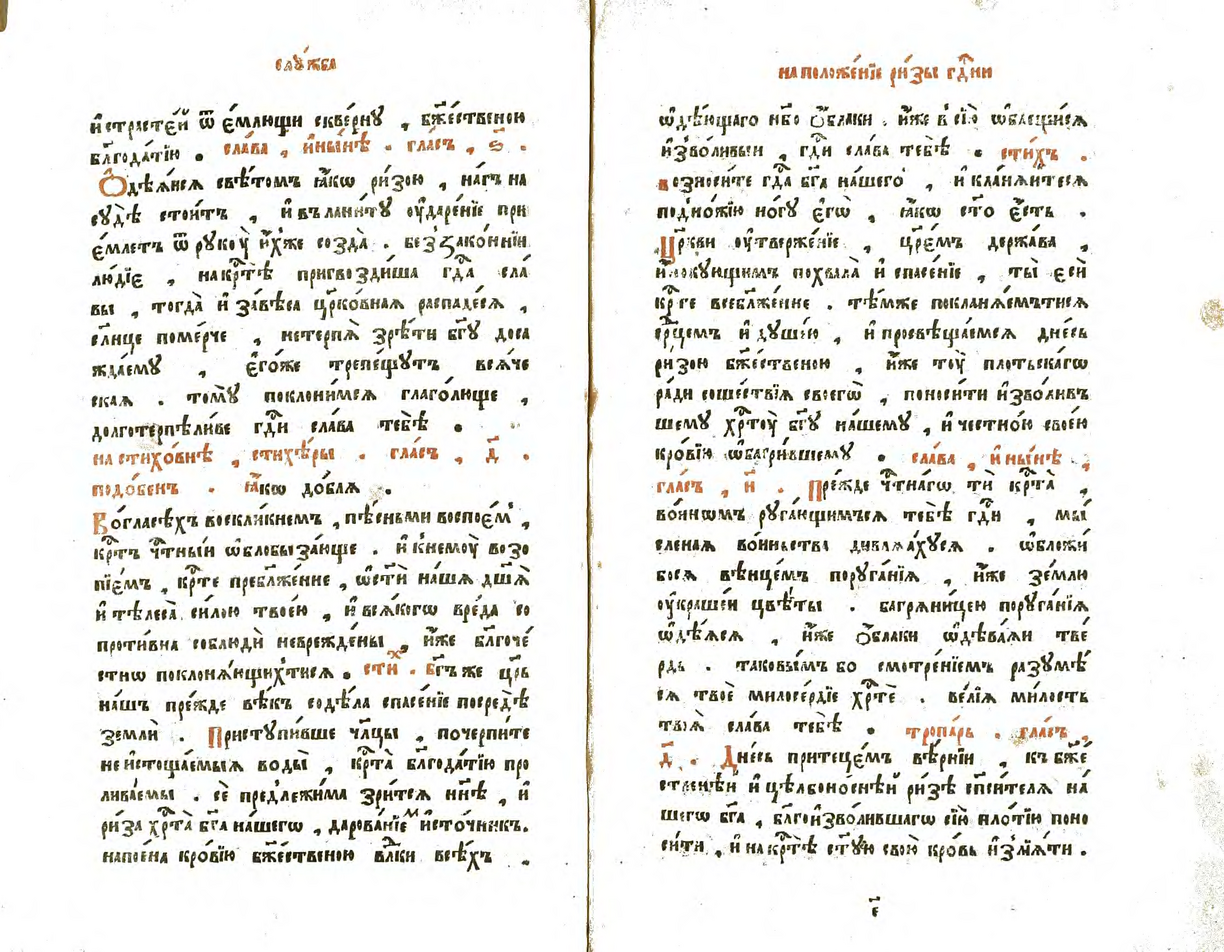 слꙋ́жба
и҆ страсте́й ѿ є҆́млющи скве́рнꙋ , бж҃е́ственою
блг҃ода́тїю . сла́ва , и҆ ны́нѣ . гла́съ , ѕ҃ .
Ѻ҆дѣ́яися свѣ́томъ ꙗ҆́кѡ ри́зою , на́гъ на
сꙋдѣ̀ стои́тъ , и҆ в̾ лани́тꙋ ᲂу҆даре́нїе прїи
є҆́млетъ ѿ рꙋкꙋ̀ и҆́хже созда̀ . беззако́ннїи
лю́дїє , на крⷭ҇тѣ̀ пригвозди́ша гдⷭ҇а сла́
вы , тогда̀ и҆ завѣ́са црⷪ҇ко́вная распаде́ся ,
сл҃нце поме́рче , не терпѧ̀ зрѣ́ти бг҃ꙋ доса
жда́емꙋ , є҆го́же трепе́щꙋтъ вся́че
ская . томꙋ̀ поклони́мся глаго́люще ,
долготерпѣли́ве гдⷭ҇и сла́ва тебѣ̀ .
на стихо́внѣ , стихѣ́ры . гла́съ , д҃ .
подо́бенъ . ꙗ҆́кѡ до́бля .
Во гласѣ́хъ воскли́кнемъ , пѣ́сньми воспое́м ,
крⷭ҇тъ чⷭ҇тны́и ѡ҆блобыза́юще . и҆ к немꙋ̀ возо
пїе́мъ , крⷭ҇те пребл҃же́нне , ѡ҆ст҃и́ на́шѧ дш҃ѧ̀
и҆ тѣлеса̀ си́лою твое́ю , и҆ вся́когѡ вре́да со
проти́вна соблюдѝ невреже́ны , и҆́же блг҃оче́
стнѡ покланя́ющихтися . сти́х . бг҃ъ же цр҃ь
на́шъ пре́жде вѣ́къ содѣ́ла спасе́нїе посредѣ̀
землѝ . Пристꙋпи́вше чл҃цы , почерпи́те
неистоща́емыя во́ды , крⷭ҇та̀ блг҃ода́тїю про
лива́емы . сѐ предлежи́ма зри́тся нн҃ѣ , и҆
ри́за хрⷭ҇та̀ бг҃а на́шегѡ , дарова́нїем и҆сто́чникъ .
напое́на кро́вїю бж҃е́ственою влⷣки всѣ́хъ .
на положе́нїе ри́зы гдⷭ҇ни
ѡ҆дѣ́ющаго нб҃о ѻ҆́блаки . и҆́же в̾ сїю̀ ѡ҆блещи́ся
и҆зво́ливыи , гдⷭ҇и сла́ва тебѣ̀ . сти́хъ .
возноси́те гдⷭ҇а бг҃а на́шего , и҆ кланя́итеся
подно́жїю ногꙋ̀ є҆гѡ̀ , ꙗ҆́кѡ ст҃о є҆́сть .
Цр҃кви ᲂу҆твержде́нїе , цр҃е́мъ держа́ва ,
и҆нокꙋющимъ похвала̀ и҆ спасе́нїе , ты̀ є҆сѝ
крⷭ҇те всебл҃же́нне . тѣ́мже покланя́ємътися
се́рцемъ и҆ дꙋше́ю , и҆ просвѣща́емся дне́сь
ри́зою бж҃е́ственою , и҆́же тꙋ̀ пло́тьскагѡ
ра́ди соше́ствїѧ своегѡ̀ , поноси́ти и҆зво́ливъ
шемꙋ хрⷭ҇тꙋ̀ бг҃ꙋ на́шемꙋ , и҆ честно́ю свое́ю
кро́вїю ѡ҆багри́вшемꙋ . сла́ва , и҆ ны́нѣ ,
гла́съ , и҃ . Пре́жде чⷭ҇тна́гѡ ти̂ крⷭ҇та̀ ,
во́инѡмъ рꙋга́ющимъся тебѣ̀ гдⷭ҇и , мы́
сленая во́иньства дивля́ахꙋся . ѡ҆бложи́
бося вѣнце́мъ порꙋга́нїѧ , и҆́же зе́млю
ᲂу҆краше́й цвѣ́ты . багряни́цею порꙋга́нїѧ
ѡ҆дѣ́яся , и҆́же ѻ҆́блаки ѡ҆дѣва́ѧи тве́
рдь . таковы́мъ бо смотре́нїемъ разꙋмѣ́
ся твоѐ милосе́рдїе хрⷭ҇тѐ . ве́лїя ми́лость
твоѧ̀ сла́ва тебѣ̀ . тропа́рь . гла́съ ,
д҃ . Дне́сь притеце́мъ вѣ́рнїи , къ бж҃е́
ственѣ́и и҆ цѣльбоно́снѣй ри́зѣ сп҃си́теля на́
шегѡ бг҃а , блг҃оизво́лившагѡ сїю̀ пло́тїю поно
си́ти , и҆ на крⷭ҇тѣ̀ ст҃ꙋ́ю свою̀ кро́вь и҆злїѧ́ти .
є҃